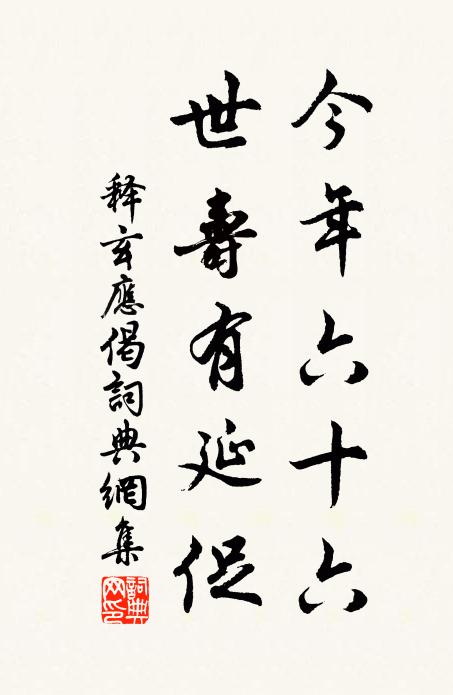 今年六十六
世壽有延促
释玄應偈詞典網集
詞典
网印